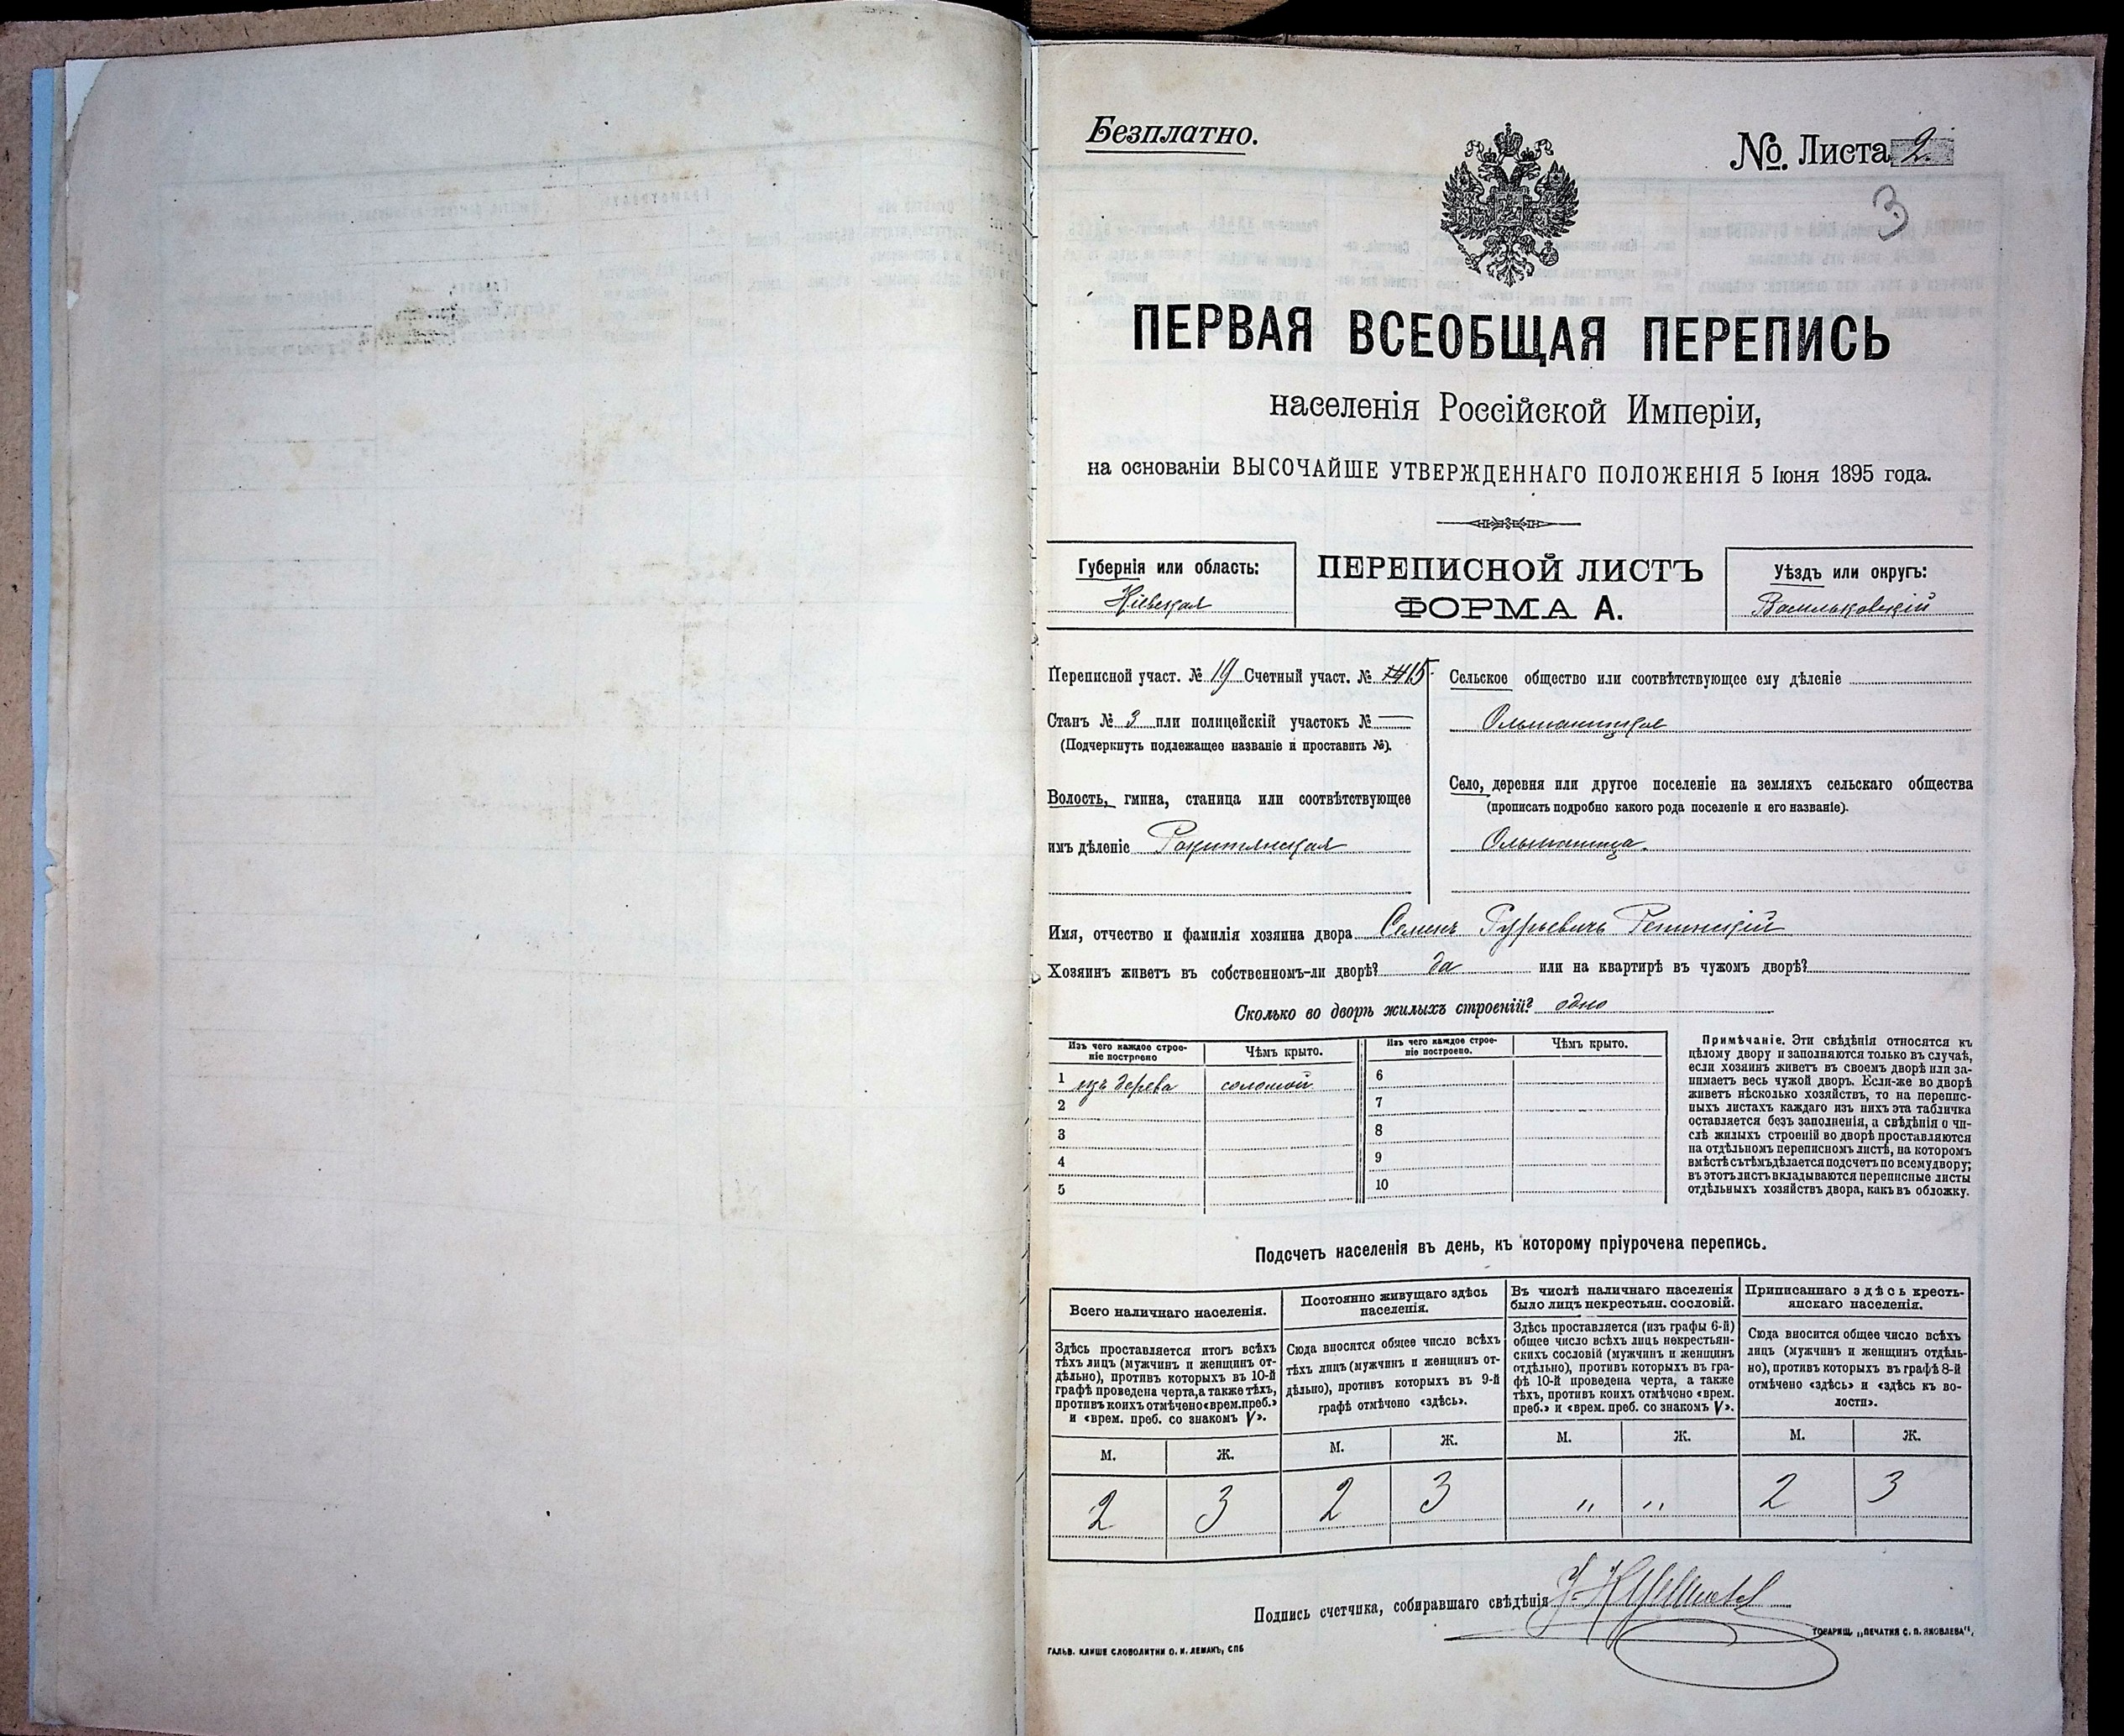 Безплатно.
№ Листа 2.
3
ПЕРВАЯ ВСЕОБЩАЯ ПЕРЕПИСЬ
населенія Россійской Имперіи,
на основаніи ВЫСОЧАЙШЕ УТВЕРЖДЕННАГО ПОЛОЖЕНІЯ 5 Іюня 1895 года.
Губернія или область:
Кіевская
ПЕРЕПИСНОЙ ЛИСТЪ
ФОРМА А.
Уѣздъ или округъ:
Васильковскій
Переписной участ. № 19 Счетный участ. № 15
Станъ № 3 или полицейскій участокъ № —
(Подчеркнуть подлежащее названіе и проставить №).
Волость, гмина, станица или соотвѣтствующее
имъ дѣленіе Рокитянская
Сельское общество или соотвѣтствующее ему дѣленіе
Ольшаницкое
Село, деревня или другое поселеніе на земляхъ сельскаго общества
(прописать подробно какого рода поселеніе и его названіе).
Ольшаница.
Имя, отчество и фамилія хозяина двора Семенъ Гурьевичъ
Хозяинъ живетъ въ собственномъ-ли дворѣ? да или на квартирѣ въ чужомъ дворѣ?
Сколько во дворѣ жилыхъ строеній? одно
Изъ чего каждое строе-
ніе построено
Чѣмъ крыто.
Изъ чего каждое строе-
ніе построено.
Чѣмъ крыто.
1 изъ дерева соломой
2
3
4
5
6
7
8
9
10
Примѣчаніе. Эти свѣдѣнія относятся къ
цѣлому двору и заполняются только въ случаѣ,
если хозяинъ живетъ въ своемъ дворѣ или за-
нимаетъ весь чужой дворъ. Если-же во дворѣ
живетъ нѣсколько хозяйствъ, то на перепис-
ныхъ листахъ каждаго изъ нихъ эта табличка
оставляется безъ заполненія, а свѣдѣнія о чи-
слѣ жилыхъ строеній во дворѣ проставляются
на отдѣльномъ переписномъ листѣ, на которомъ
вмѣстѣ съ тѣмъ дѣлается подсчетъ по всему двору;
въ этотъ листъ вкладываются переписные листы
отдѣльныхъ хозяйствъ двора, какъ въ обложку.
Подсчетъ населенія въ день, къ которому пріурочена перепись.
Всего наличнаго населенія.
Здѣсь проставляется итогъ всѣхъ
тѣхъ лицъ (мужчинъ и женщинъ от-
дѣльно), противъ которыхъ въ 10-й
графѣ проведена черта, а также тѣхъ,
противъ коихъ отмѣчено «врем. преб.»
и «врем. преб. со знакомъ V».
Постоянно живущаго здѣсь
населенія.
Сюда вносится общее число всѣхъ
тѣхъ лицъ (мужчинъ и женщинъ от-
дѣльно), противъ которыхъ въ 9-й
графѣ отмѣчено «здѣсь».
Въ числѣ наличнаго населенія
было лицъ некрестьян. сословій.
Здѣсь проставляется (изъ графы 6-й)
общее число всѣхъ лицъ некрестьян-
скихъ сословій (мужчинъ и женщинъ
отдѣльно), противъ которыхъ въ гра-
фѣ 10-й проведена черта, а также
тѣхъ, противъ коихъ отмѣчено «врем.
преб.» и «врем. преб. со знакомъ V».
Приписаннаго здѣсь кресть-
янскаго населенія.
Сюда вносится общее число всѣхъ
лицъ (мужчинъ и женщинъ отдѣль-
но), противъ которыхъ въ графѣ 8-й
отмѣчено «здѣсь» и «здѣсь къ во-
лости».
М. Ж. М. Ж. М. Ж. М. Ж.
2 3 2 3 „ „ 2 3
Подпись счетчика, собиравшаго свѣдѣнія
ГАЛЬВ. КЛИШЕ СЛОВОЛИТНИ О. И. ЛЕМАНЪ, СПБ
ТОВАРИЩ. „ПЕЧАТНЯ С. П. ЯКОВЛЕВА“.